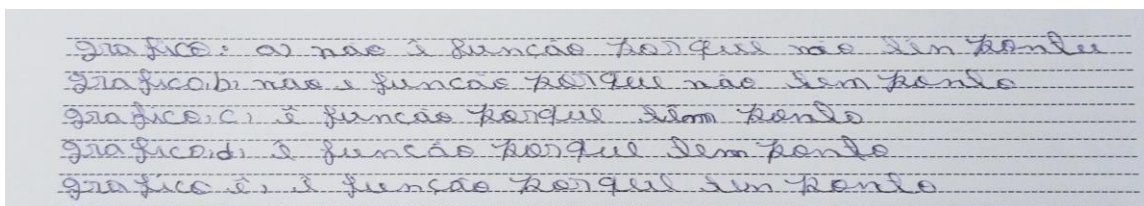 grafico: a) não é função porque não tem ponto
grafico,b, não é função porque não tem ponto
grafico,c, é função porque têm ponto
grafico,d, é função porque tem ponto
grafico é, é função porque tem ponto